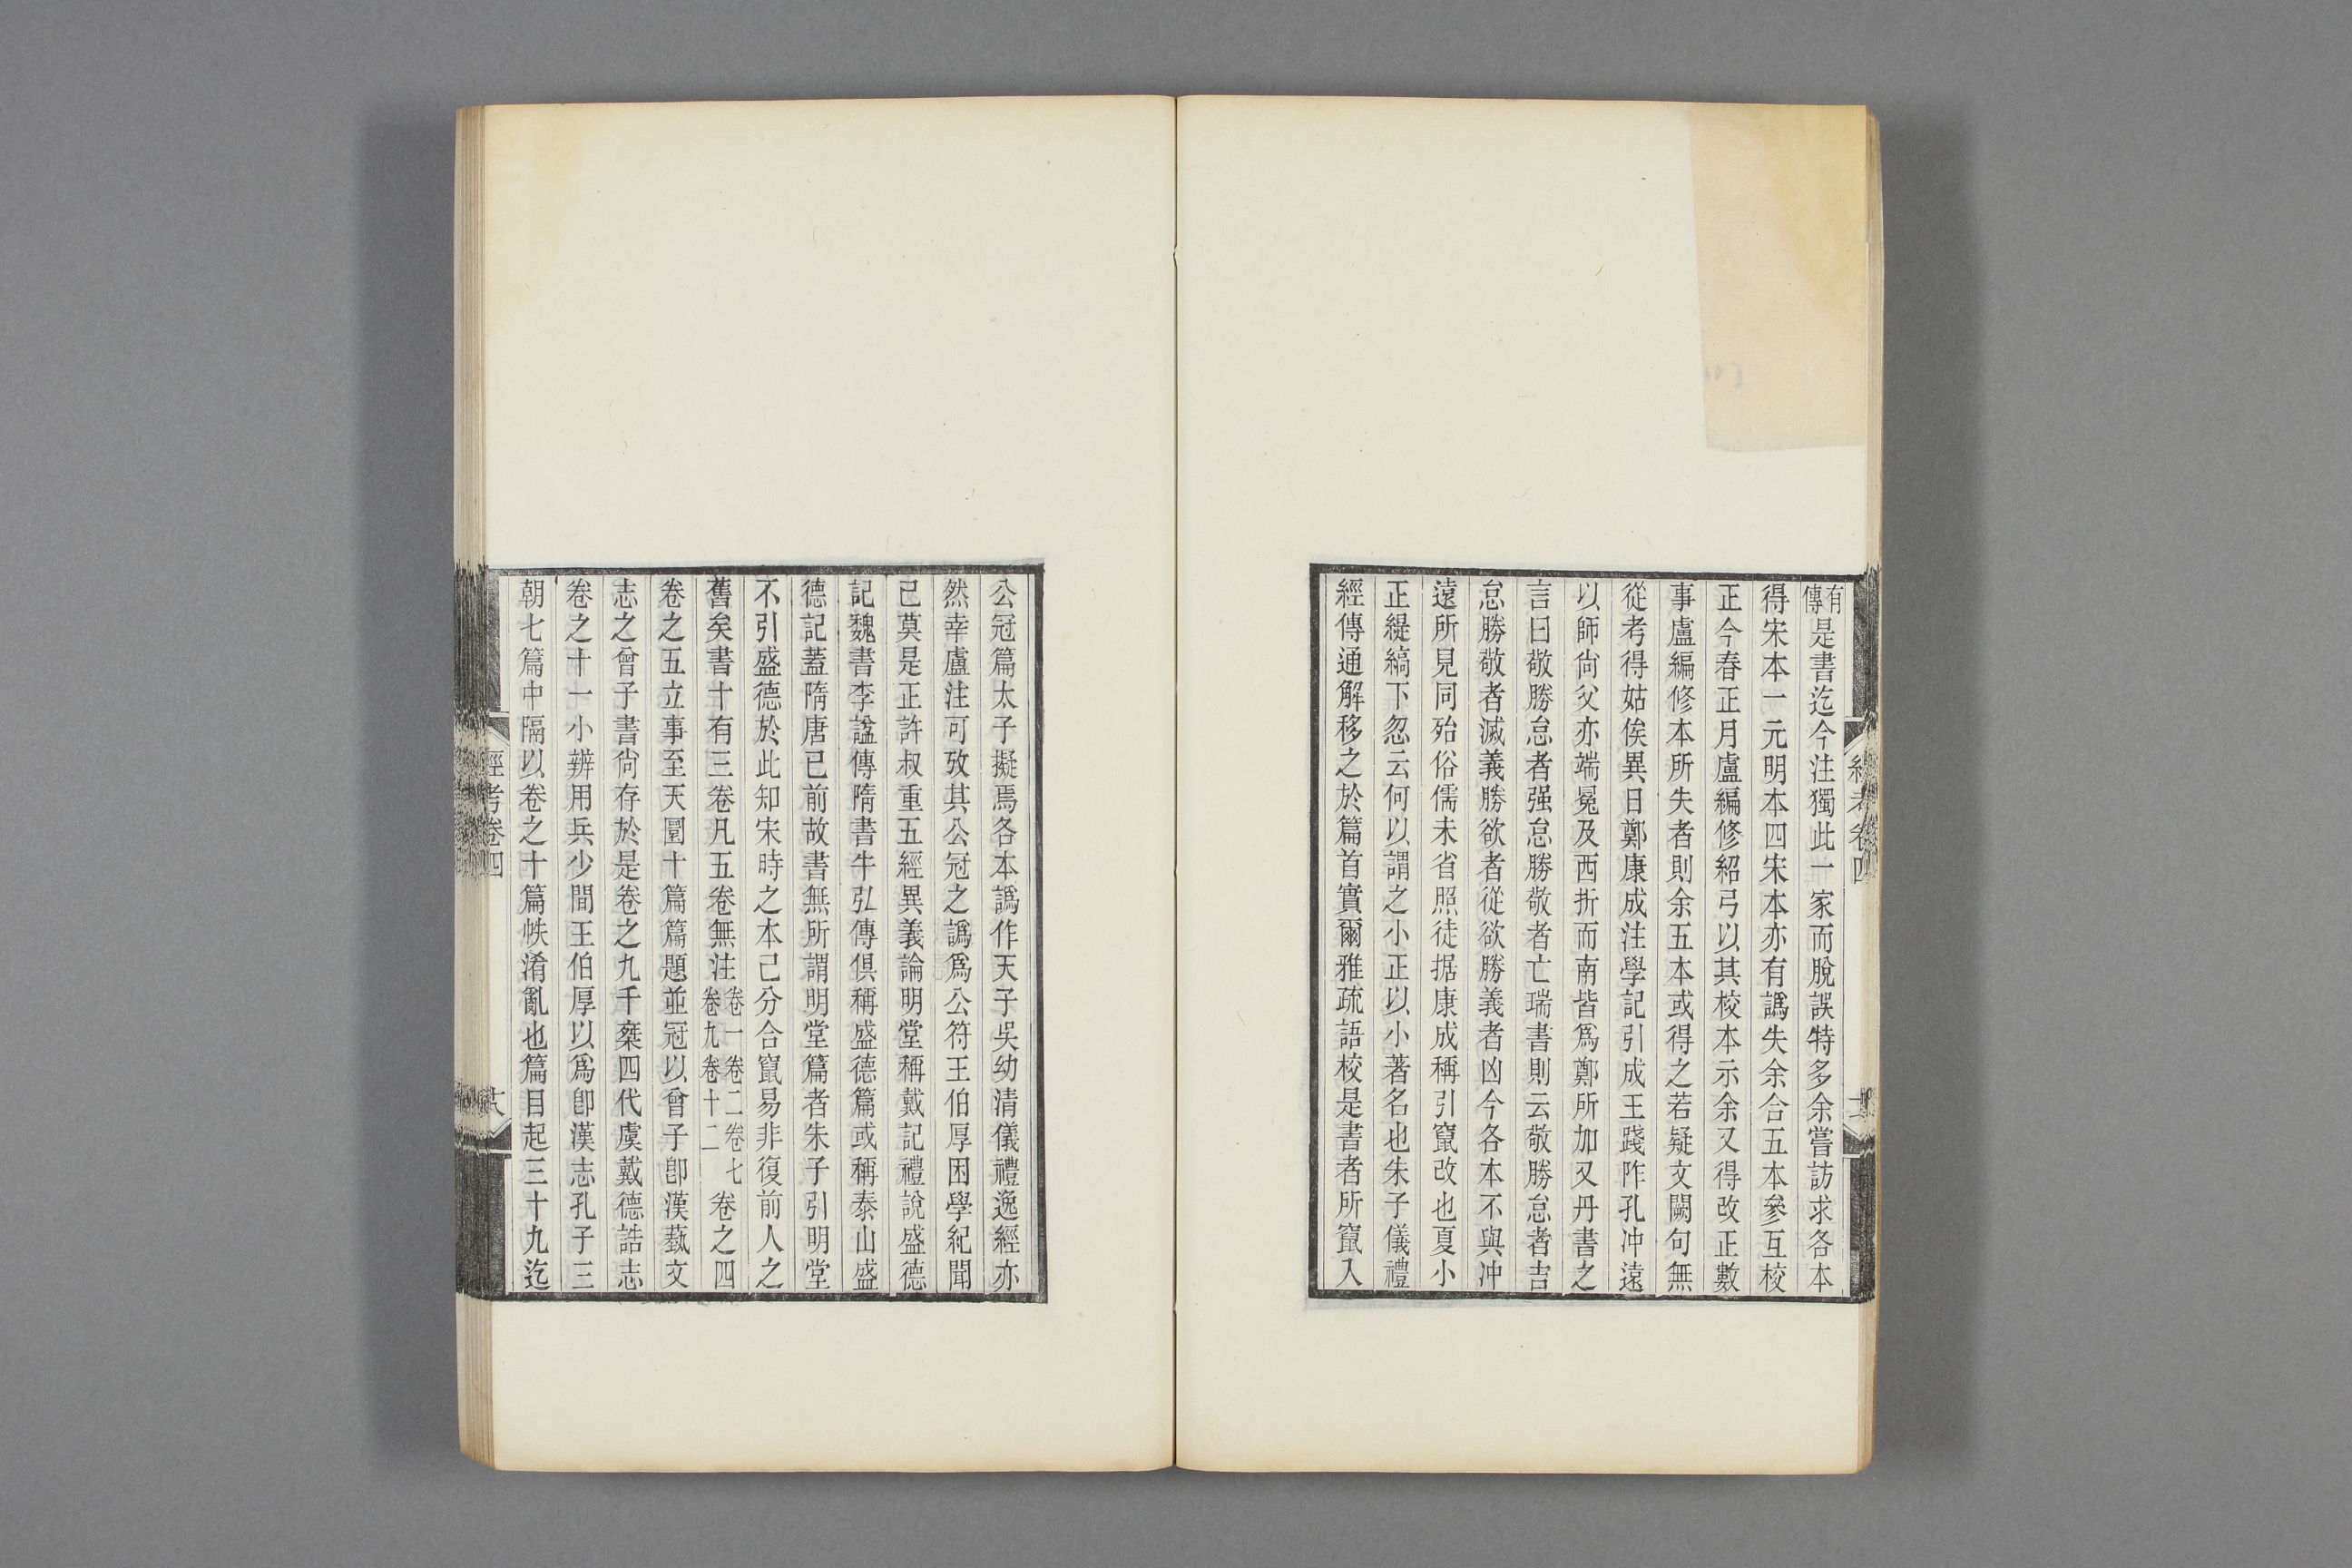 有傳是書迄今注獨此一家而脫誤特多余嘗訪求各本
得宋本一元明本四宋本亦有譌失余合五本參互校
正今春正月盧編修紹弓以其校本示余又得改正數
事盧編修本所失者則余五本或得之若疑文闕句無
從考得姑俟異日鄭康成注學記引成王踐阼孔沖遠
以師尙父亦端冕及西折而南皆爲鄭所加又丹書之
言曰敬勝怠者强怠勝敬者亡瑞書則云敬勝怠者吉
怠勝敬者滅義勝欲者從欲勝義者凶今各本不與沖
遠所見同殆俗儒未省照徒据康成稱引竄改也夏小
正緹縞下忽云何以謂之小正以小著名也朱子儀禮
經傳通解移之於篇首實爾雅疏語校是書者所竄入
公冠篇太子擬焉各本譌作天子吳幼清儀禮逸經亦
然幸盧注可攷其公冠之譌爲公符王伯厚困學紀聞
已莫是正許叔重五經異義論明堂稱戴記禮說盛德
記魏書李謐傳隋書牛弘傳俱稱盛德篇或稱泰山盛
德記蓋隋唐已前故書無所謂明堂篇者朱子引明堂
不引盛德於此知宋時之本已分合竄易非復前人之
舊矣書十有三卷凡五卷無注卷一卷二卷七卷九卷十二卷之四
卷之五立事至天圜十篇篇題並冠以曾子卽漢藝文
志之曾子書尙存於是卷之九千椉四代虞戴德誥志
卷之十一小辨用兵少間王伯厚以爲卽漢志孔子三
朝七篇中隔以卷之十篇帙淆亂也篇目起三十九迄
經考卷四